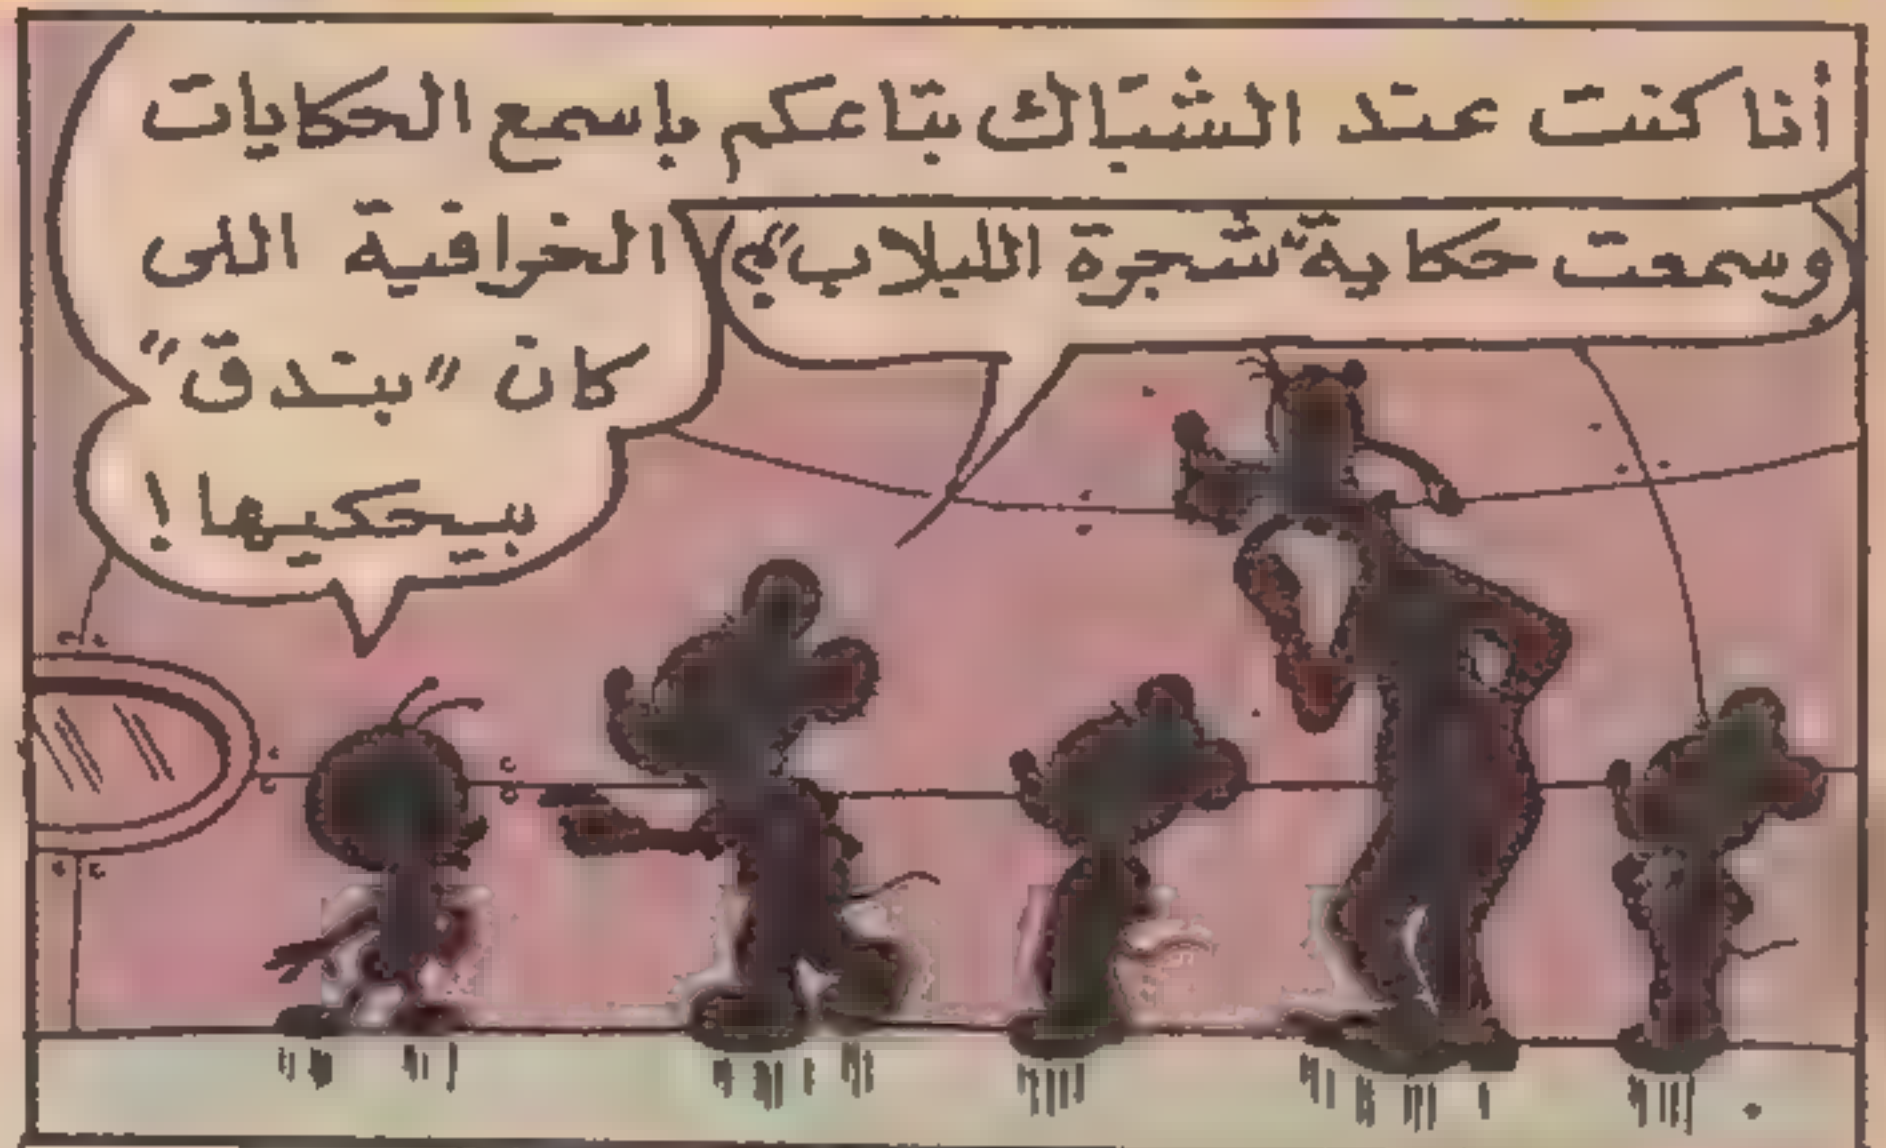 أنا كنت عند الشباك بتاعكم بإسمع الحكايات
الخرافية اللى
كان "بندق"
بيحكيها !
وسمعت حكاية "شجرة اللبلاب" ؟